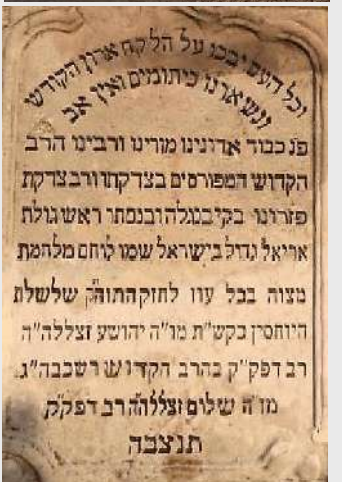 וכל העם יבכו על הלקח ארון הקודש
ונשארנו כיתומים ואין אב
פנ כבוד אדונינו מורינו ורבינו הרב
הקדוש המפורסים בצדקתו ורב צדקת
פזרונו בקי בנגלה ובנסתר ראש גולת
אריאל גדול בישראל שמו לוחם מלחמת
מצוה בכל עוז לחזק התוה"ק שלשלת
היוחסין בקש"ת מו"ה יהושע זצללה"ה
רב דפק"ק בהרב הקדוש רשכבה"ג
מו"ה שלום זצללה"ה הרב דפק"ק
תנצבה